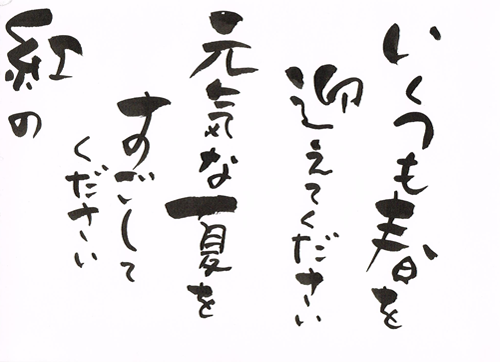 いくつも春を
迎えてください
元気な夏を
すごして
ください
紅の